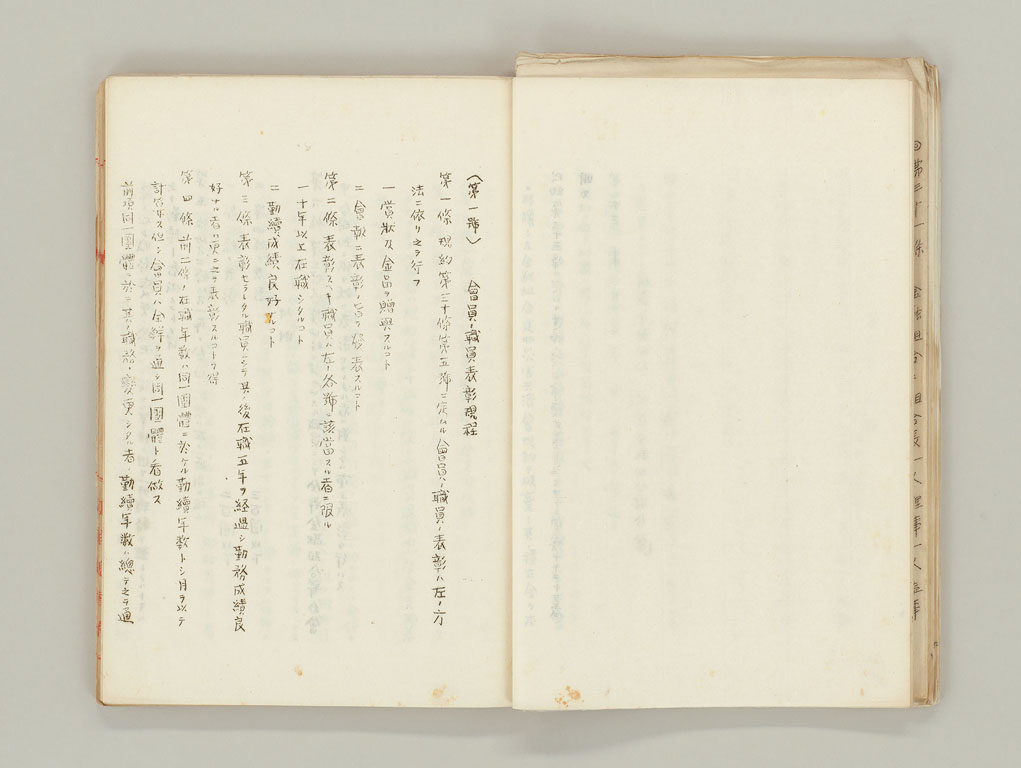 (第一號) 會員ノ職員表彰規程
第一條 規約第三十條第五號ニ定ムル會員ノ職員ノ表彰ハ左ノ方
法ニ依リ之ヲ行フ
一 賞狀及金品ヲ贈與スルコト
二 會報ニ表彰ノ旨ヲ發表スルコト
第二條 表彰スヘキ職員ハ左ノ各號ニ該當スル者ニ限ル
一 十年以上在職シタルコト
二 勤續成績良好ナルコト
第三條 表彰セラレタル職員ニシテ其ノ後在職五年ヲ經過シ勤務成績良
好ナル者ハ更ニ之ヲ表彰スルコトヲ得
第四條 前二條ノ在職年數ハ同一團體ニ於ケル勤續年數トシ月ヲ以テ
計算ス但シ會員ハ全 ヲ通シ同一團體ト看做ス
前項同一團體ニ於テ其ノ職務ノ變更シタル者ノ勤續年數ハ總テ之ヲ通
第三十一條 金融組合ニ組合長一人理事一人監事